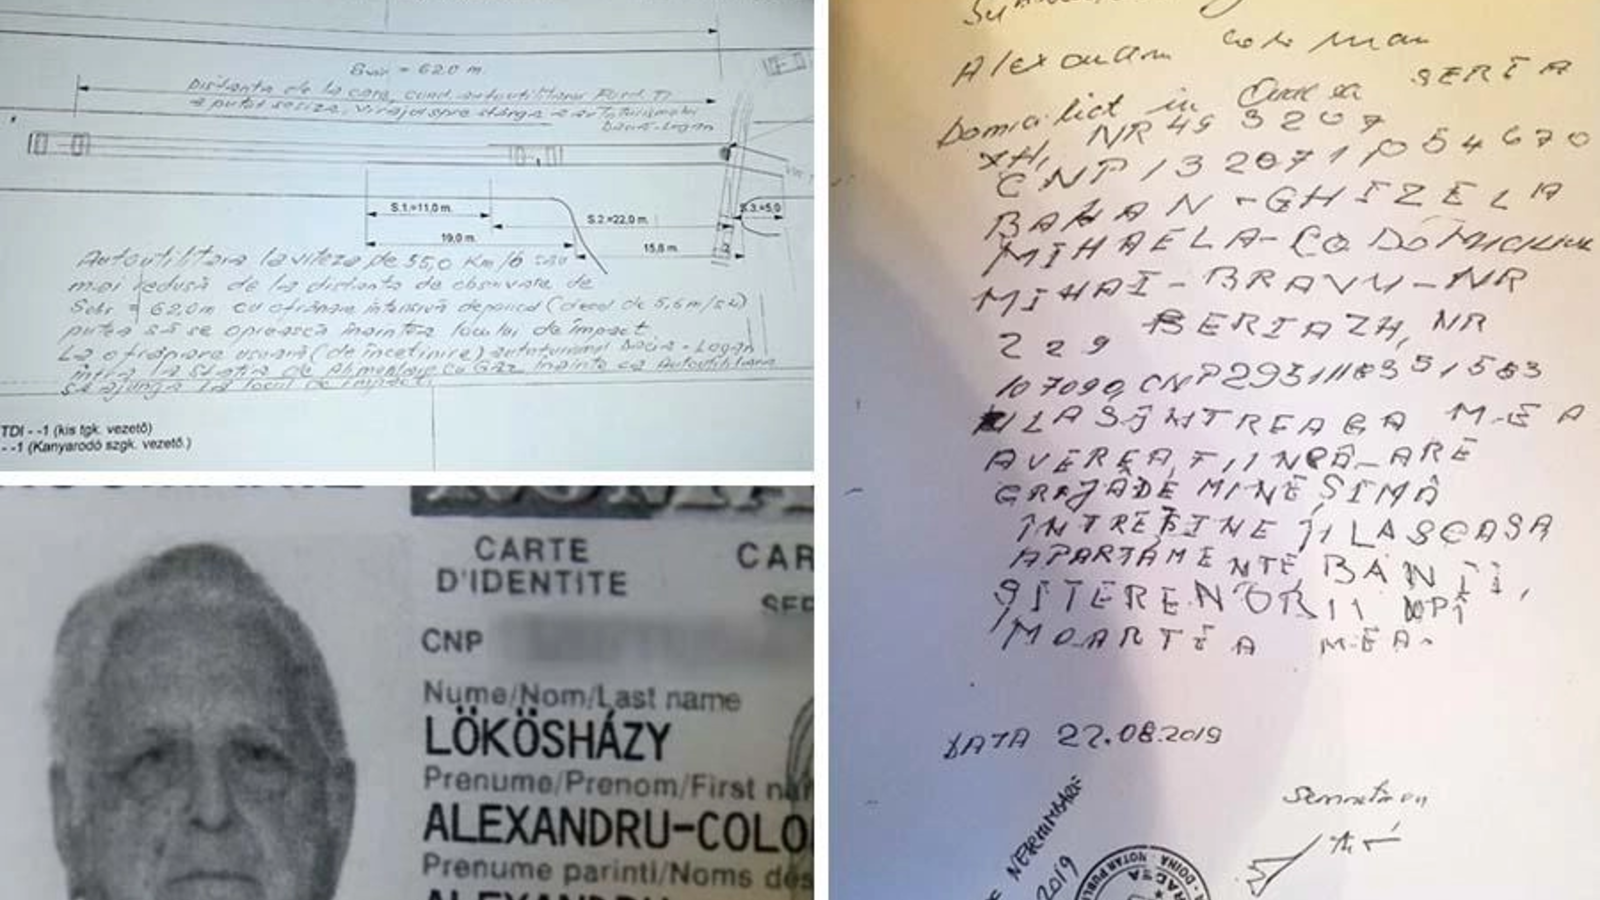 Svir = 62.0 m
Distanta de la care, cand autoutilitara Ford T)
a putut sesiza, virajul spre stânga a autoturismului
Dacia-Logan
S.1.=11,0 m.
S.2.=22,0 m.
S.3.=5,0
19,0 m.
15,8 m.
Autoutilitara la viteza de 55,0 Km/ó sau
mai redusă de la distanta de observate de
Sobr = 62,0m cu ofrânare intensivă depasind (decel de 5,6 m/s2)
putea să se oprească înaintea locului de impact
La ofrânare usuară (de încetinire) autoturismul Dacia-Logan
intra la Statia de Alimentare cu Gaz înainte ca Autoutilitara
să ajungă la locul de impact.
TDI - -1 (kis tgk. vezető)
- -1 (Kanyarodó szgk. vezető.)
CARTE
D'IDENTITE
CAR
SER
CNP
Nume/Nom/Last name
LÖKÖSHÁZY
Prenume/Prenom/First na
ALEXANDRU-COLO
Prenume parinti/Noms des
ALEXANDRU
Alexandru Coloman
Domiciliat in Oradea SERIA
XH, NR 493207
CNP 1320711054670
BAHAN-GHIZELA
MIHAELA-CO DOMICILIU
MIHAI-BRAVU-NR
229 SERIAZH, NR
107090, CNP 2931118351583
LAS INTREAGA MEA
AVEREA, FIINCĂ ARE
GRIJĂ DE MINE ȘI MĂ
ÎNTREȚINE ÎI LAS CASA
APARTAMENTE BANII,
ȘI TERENURII DUPĂ
MOARTEA MEA.
DATA 22.08.2019
Semnatura
NE NESCHIMBARE
2019
DOINA
NOTAR PUBLIC